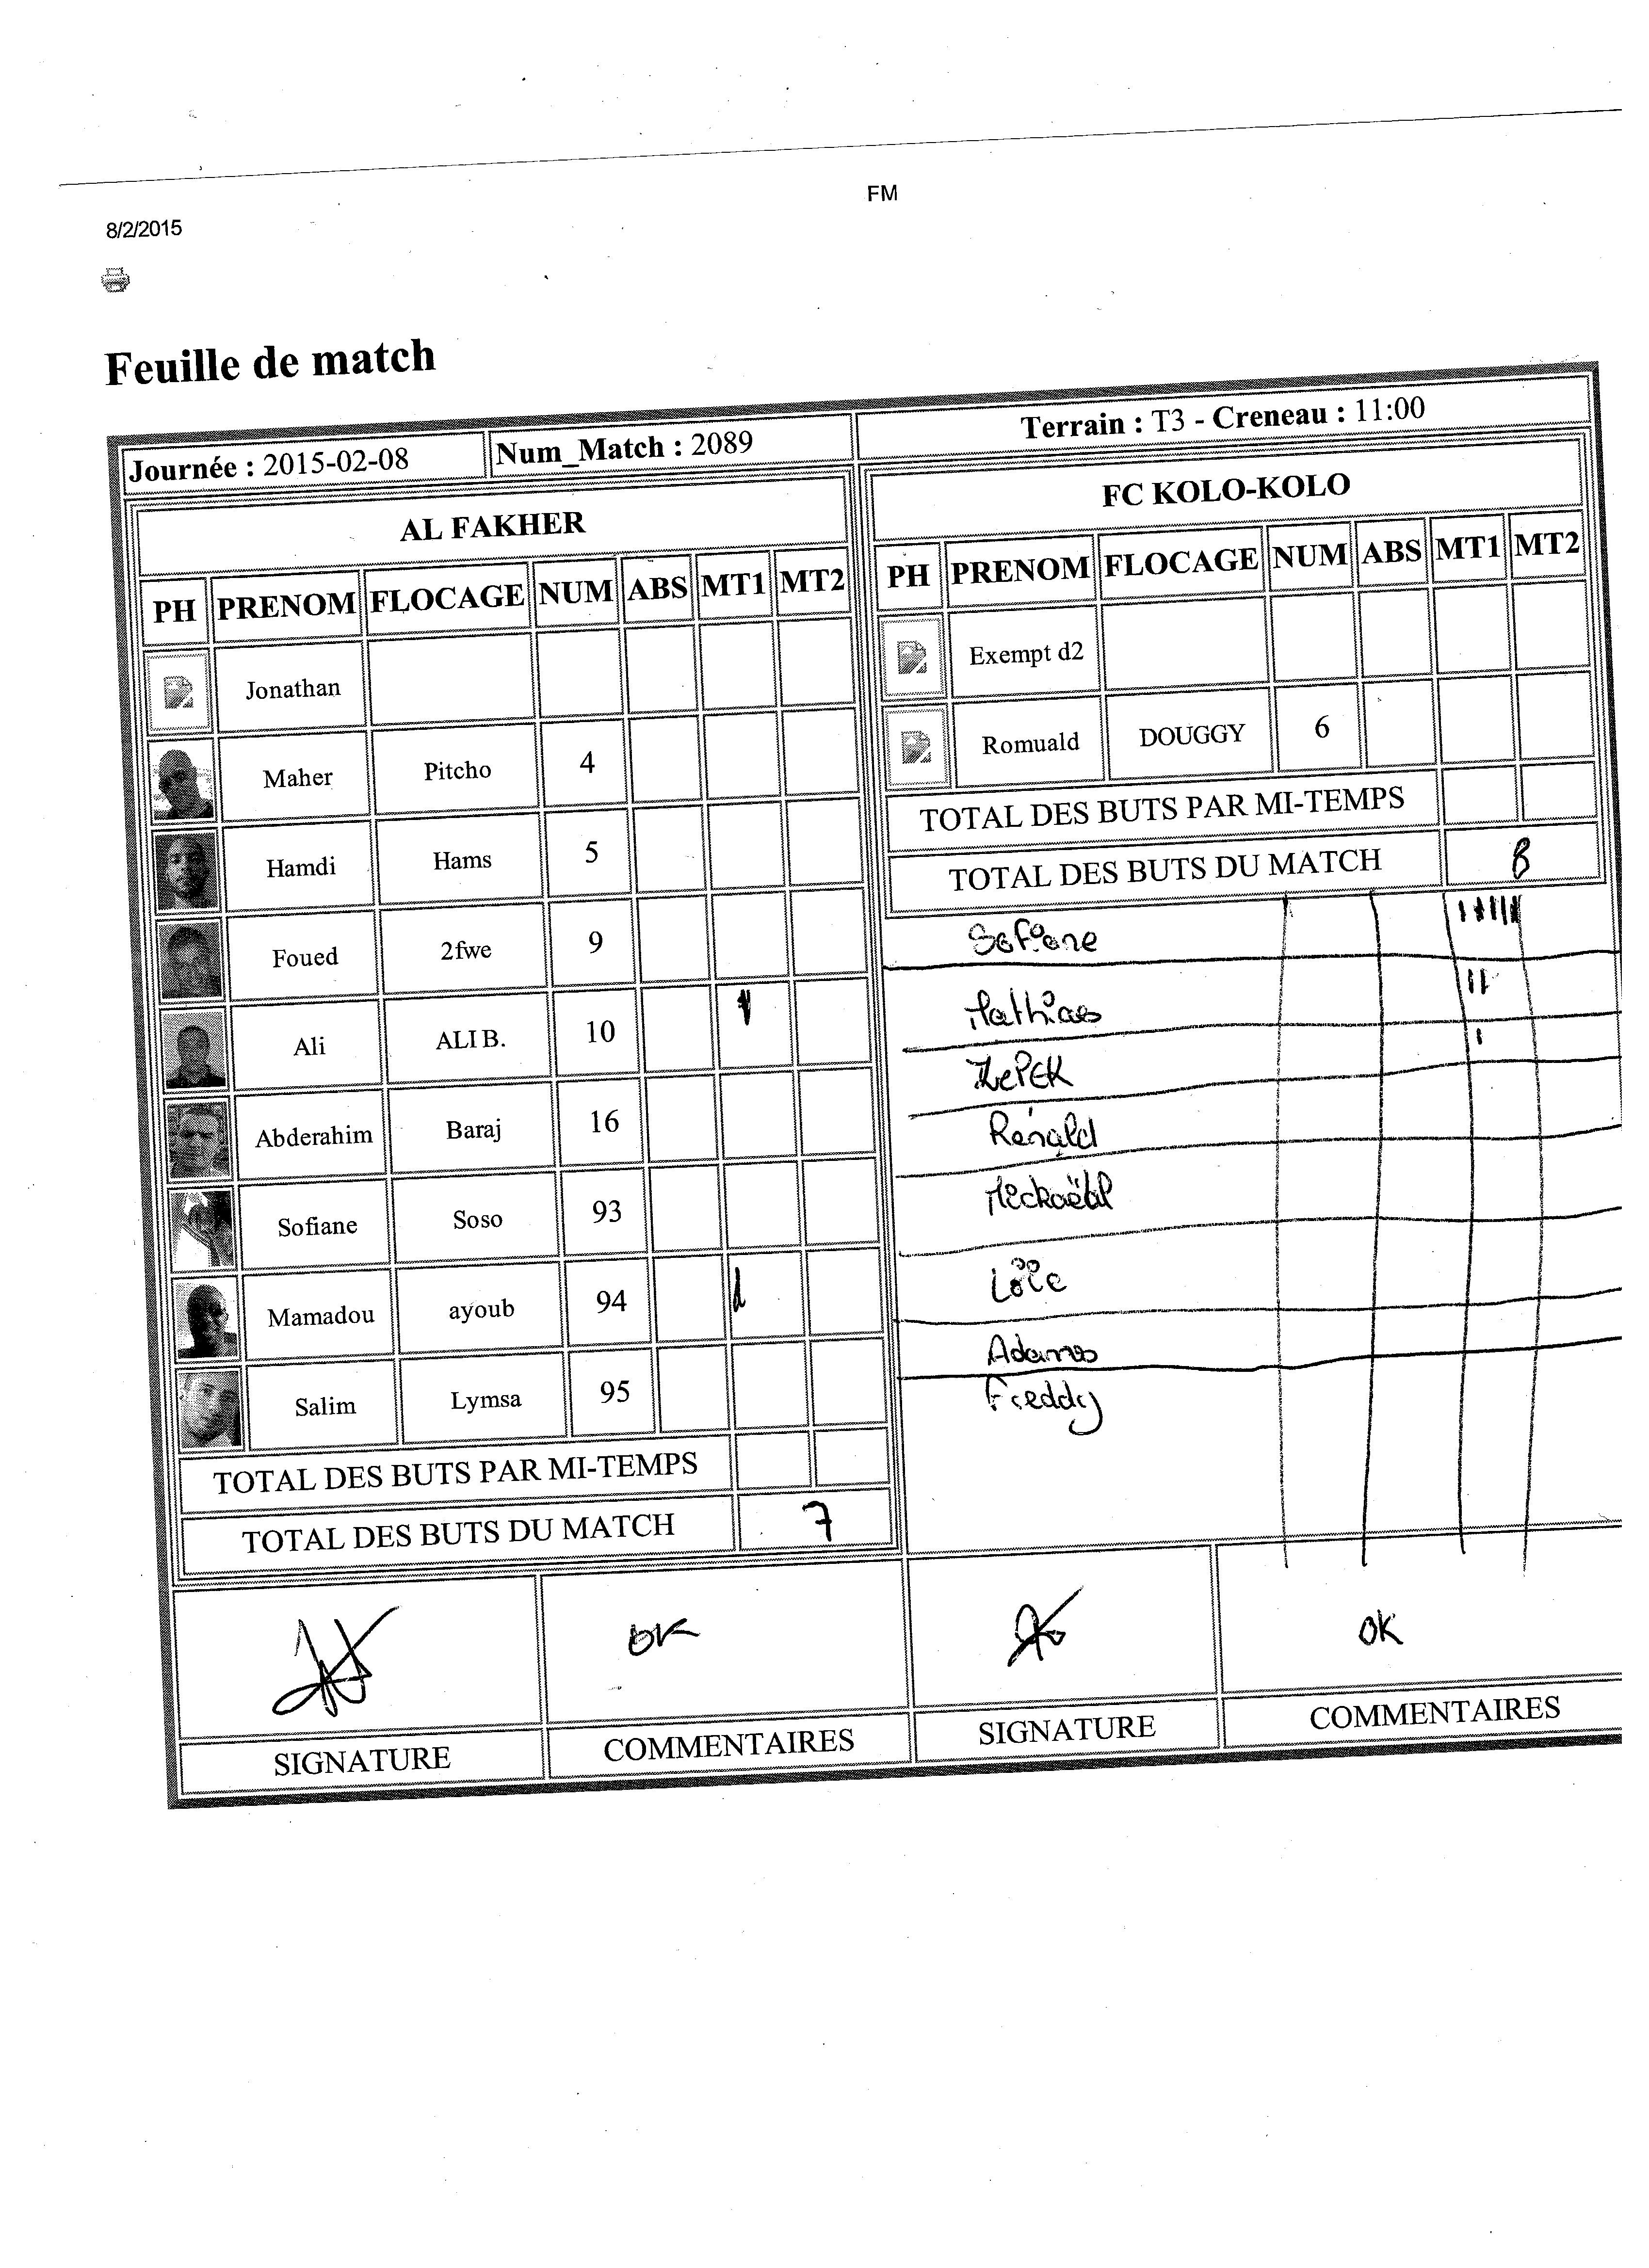 FM
8/2/2015
Feuille de match
Journée : 2015-02-08 Num_Match : 2089 Terrain : T3 - Creneau : 11:00
AL FAKHER
PH PRENOM FLOCAGE NUM ABS MT1 MT2
Jonathan
Maher Pitcho 4
Hamdi Hams 5
Foued 2fwe 9
Ali ALI B. 10
Abderahim Baraj 16
Sofiane Soso 93
Mamadou ayoub 94
Salim Lymsa 95
TOTAL DES BUTS PAR MI-TEMPS
TOTAL DES BUTS DU MATCH 7
FC KOLO-KOLO
PH PRENOM FLOCAGE NUM ABS MT1 MT2
Exempt d2
Romuald DOUGGY 6
TOTAL DES BUTS PAR MI-TEMPS
TOTAL DES BUTS DU MATCH 8
Sofiane
Mathias II
I
Renald
Mickaël
Loïc
Adams
Freddy
OK
OK
SIGNATURE COMMENTAIRES SIGNATURE COMMENTAIRES